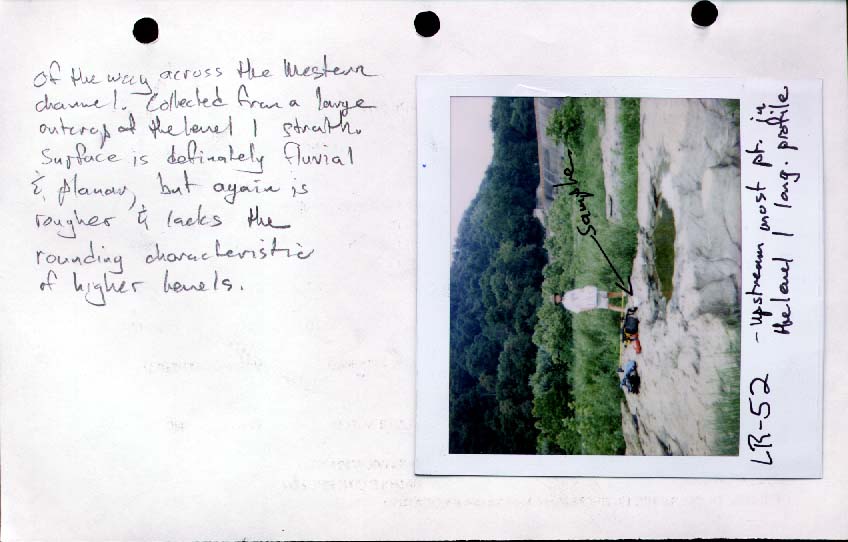 of the way across the Western
channel. Collected from a large
outcrop of the level 1 strath.
Surface is definately fluvial
& planar, but again is
rougher & lacks the
rounding characteristic
of higher levels.
Sample
LR-52 - upstream most pt. in
the level 1 long. profile